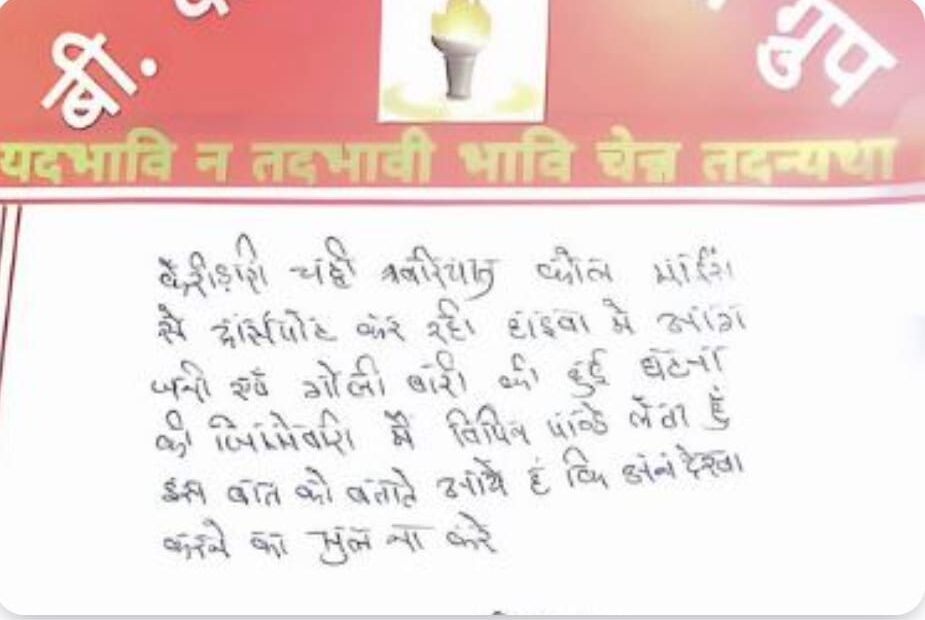 बी.
ग्रुप
यदभावि न तदभावी भावि चेन्न तदन्यथा
केरीडारी चट्टी बारियातु कोल माईंस
से ट्रांसपोट कर रहा हाइवा मे आग
जनी एवं गोली बारी की हुई घटना
की जिम्मेवारी मै विपिन पांडे लेता हुं
इस बात को बताते आये है कि अनदेखा
करने का भुल ना करे